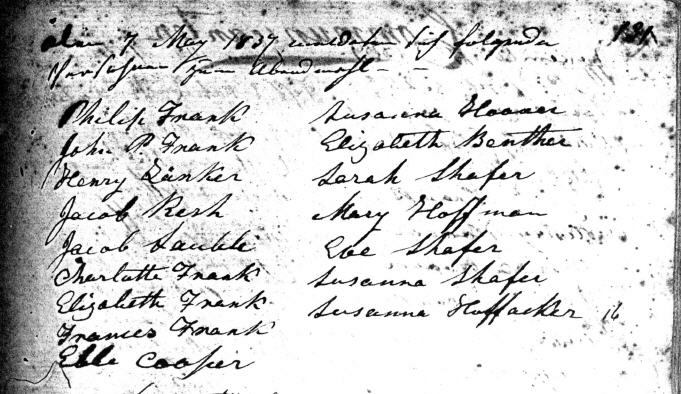 den 7 May 1837 meldeten sich folgende
Personen zum Abendmahl - -
Philip Frank
John P Frank
Henry Zänker
Jacob Resh
Jacob Lauble
Charlotte Frank
Elizabeth Frank
Frances Frank
Cooper
Susanna Hoover
Elizabeth Benther
Sarah Shafer
Mary Hoffman
Eve Shafer
Susanna Shafer
Susanna Hoffacker 16